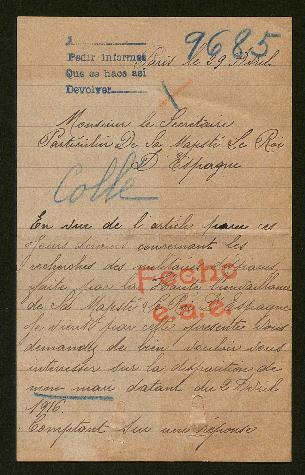 A
Pedir informes
Que se hace así
Devolver
9685
Paris le 29 Avril
Monsieur le Secretaire
Particulier De Sa Majsté Le Roi
D'Espagne
Colle
En vue de l'article parue ces
jours concernant les
recherches des militaires disparus,
faite par la bienveillance
de Sa Majsté le Roi D'Espagne
je viens par cette presente Vous
demander de bien vouloir vous
interesser sur la disparation de
mon mari datant du 9 Avril
1916.
Comptant sur une reponse
Fecho
e.a.e.